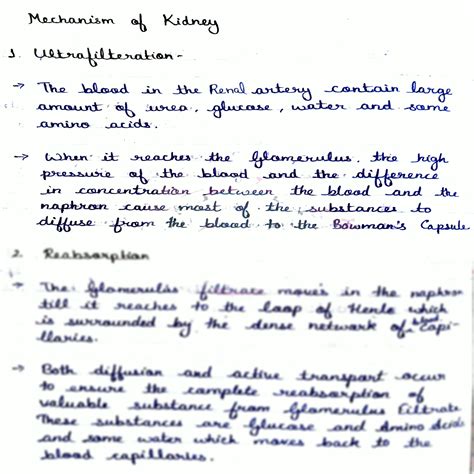 Mechanism of Kidney
1. Ultrafilteration -
→ The blood in the Renal artery contain large
amount of urea, glucose, water and some
amino acids.
→ When it reaches the Glomerulus, the high
pressure of the blood and the difference
in concentration between the blood and the
naphron cause most of the substances to
diffuse from the blood to the Bowman's Capsule
2. Reabsorption
→ The Glomerulus filtrate moves in the naphron
till it reaches to the loop of Henle which
is surrounded by the dense network of blood Capi-
llaries.
→ Both diffusion and active transport occur
to ensure the complete reabsorption of
valuable substance from Glomerulus filtrate
These substances are Glucose and Amino Acids
and some water which moves back to the
blood capillaries.